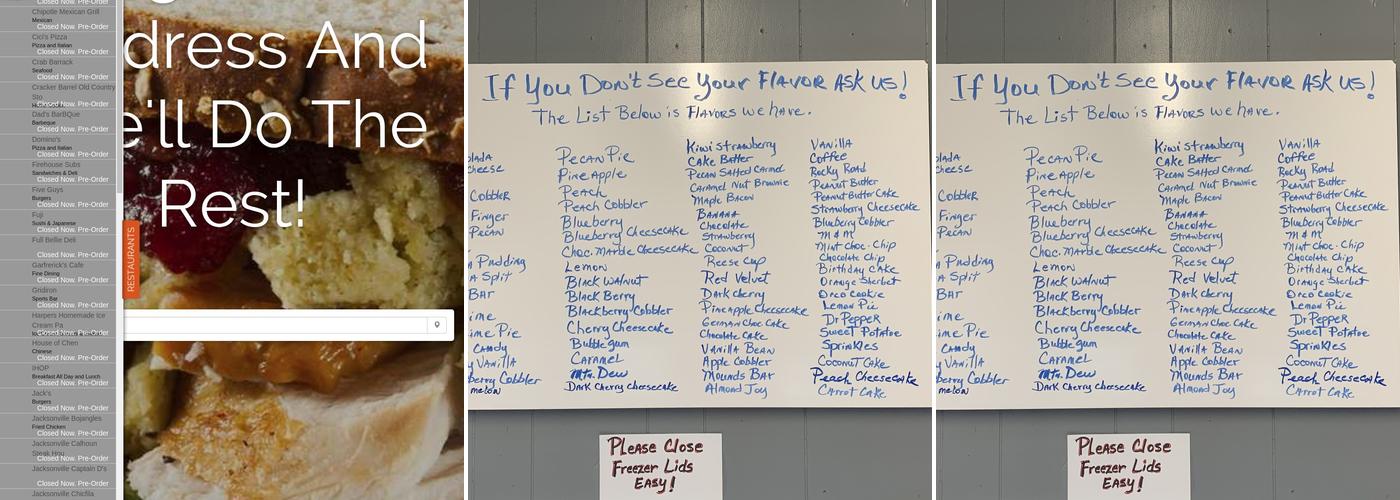 Closed Now. Pre-Order
Chipotle Mexican Grill
Mexican
Closed Now. Pre-Order
Cici's Pizza
Pizza and Italian
Closed Now. Pre-Order
Crab Barrack
Seafood
Closed Now. Pre-Order
Cracker Barrel Old Country
Sto
Closed Now. Pre-Order
Dad's BarBQue
Barbeque
Closed Now. Pre-Order
Domino's
Pizza and Italian
Closed Now. Pre-Order
Firehouse Subs
Sandwiches & Deli
Closed Now. Pre-Order
Five Guys
Burgers
Closed Now. Pre-Order
Fuji
Sushi & Japanese
Closed Now. Pre-Order
Full Belle Deli
Closed Now. Pre-Order
Garfrerick's Cafe
Fine Dining
Closed Now. Pre-Order
Gridiron
Sports Bar
Closed Now. Pre-Order
Harpers Homemade Ice
Cream Pa
Closed Now. Pre-Order
House of Chen
Chinese
Closed Now. Pre-Order
IHOP
Breakfast All Day and Lunch
Closed Now. Pre-Order
Jack's
Burgers
Closed Now. Pre-Order
Jacksonville Bojangles
Fried Chicken
Closed Now. Pre-Order
Jacksonville Calhoun
Steak Hou
Closed Now. Pre-Order
Jacksonville Captain D's
Closed Now. Pre-Order
Jacksonville Chicfila
dress And
e'll Do The
Rest!
RESTAURANTS
If You Don't See Your Flavor Ask us!
The List Below is Flavors we have.
olada
cheese
Cobbler
Finger
Pecan
Pudding
A Split
Bar
ime
ime Pie
Candy
y Vanilla
berry Cobbler
melow
Pecan Pie
Pine Apple
Peach
Peach Cobbler
Blueberry
Blueberry Cheesecake
Choc. Marble Cheesecake
Lemon
Black Walnut
Black Berry
Blackberry Cobbler
Cherry Cheesecake
Bubble gum
Caramel
Mtn. Dew
Dark Cherry Cheesecake
Kiwi strawberry
Cake Batter
Pecan Salted Carmel
Caramel Nut Brownie
Maple Bacon
Banana
Chocolate
Strawberry
Coconut
Reese Cup
Red Velvet
Dark cherry
Pineapple Cheesecake
German Choc Cake
Chocolate Cake
Vanilla Bean
Apple Cobbler
Mounds Bar
Almond Joy
Vanilla
Coffee
Rocky Road
Peanut Butter
Peanut Butter Cake
Strawberry Cheesecake
Blueberry Cobbler
M & M
Mint Choc. Chip
Chocolate Chip
Birthday Cake
Orange Sherbet
Oreo Cookie
Lemon Pie
Dr Pepper
Sweet Potatoe
Sprinkles
Coconut Cake
Peach Cheesecake
Carrot Cake
Please Close
Freezer Lids
Easy!
If You Don't See Your Flavor Ask us!
The List Below is Flavors we have.
olada
cheese
Cobbler
Finger
Pecan
Pudding
A Split
Bar
ime
ime Pie
Candy
y Vanilla
berry Cobbler
melow
Pecan Pie
Pine Apple
Peach
Peach Cobbler
Blueberry
Blueberry Cheesecake
Choc. Marble Cheesecake
Lemon
Black Walnut
Black Berry
Blackberry Cobbler
Cherry Cheesecake
Bubble gum
Caramel
Mtn. Dew
Dark Cherry Cheesecake
Kiwi strawberry
Cake Batter
Pecan Salted Carmel
Caramel Nut Brownie
Maple Bacon
Banana
Chocolate
Strawberry
Coconut
Reese Cup
Red Velvet
Dark cherry
Pineapple Cheesecake
German Choc Cake
Chocolate Cake
Vanilla Bean
Apple Cobbler
Mounds Bar
Almond Joy
Vanilla
Coffee
Rocky Road
Peanut Butter
Peanut Butter Cake
Strawberry Cheesecake
Blueberry Cobbler
M & M
Mint Choc. Chip
Chocolate Chip
Birthday Cake
Orange Sherbet
Oreo Cookie
Lemon Pie
Dr Pepper
Sweet Potatoe
Sprinkles
Coconut Cake
Peach Cheesecake
Carrot Cake
Please Close
Freezer Lids
Easy!